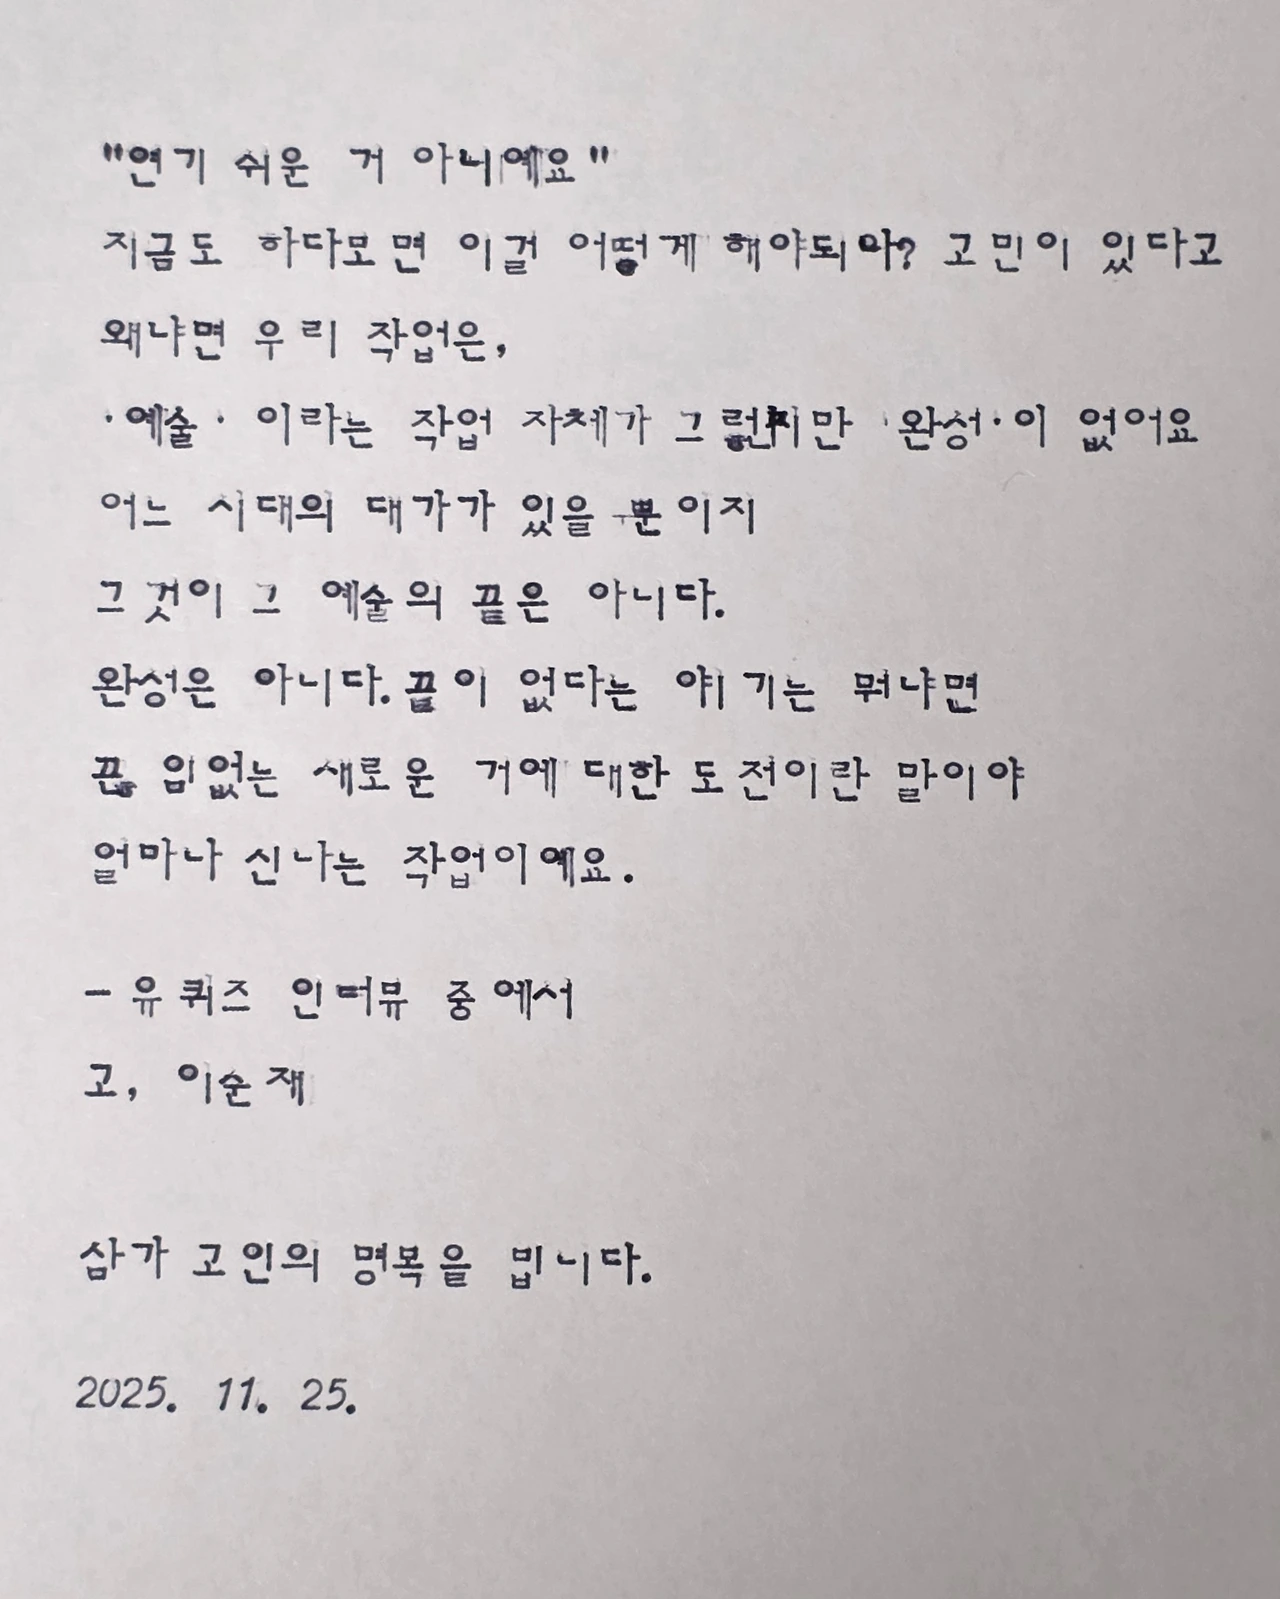 "연기 쉬운 거 아니예요"
지금도 하다모면 이걸 어떻게 해야되아? 고민이 있다고
왜냐면 우리 작업은,
·예술· 이라는 작업 자체가 그렇지만 ·완성·이 없어요
어느 시대의 대가가 있을 뿐이지
그것이 그 예술의 끝은 아니다.
완성은 아니다. 끝이 없다는 얘기는 뭐냐면
끊임없는 새로운 거에 대한 도전이란 말이야
얼마나 신나는 작업이예요.
- 유퀴즈 인터뷰 중에서
고, 이순재
삼가 고인의 명복을 빕니다.
2025. 11. 25.